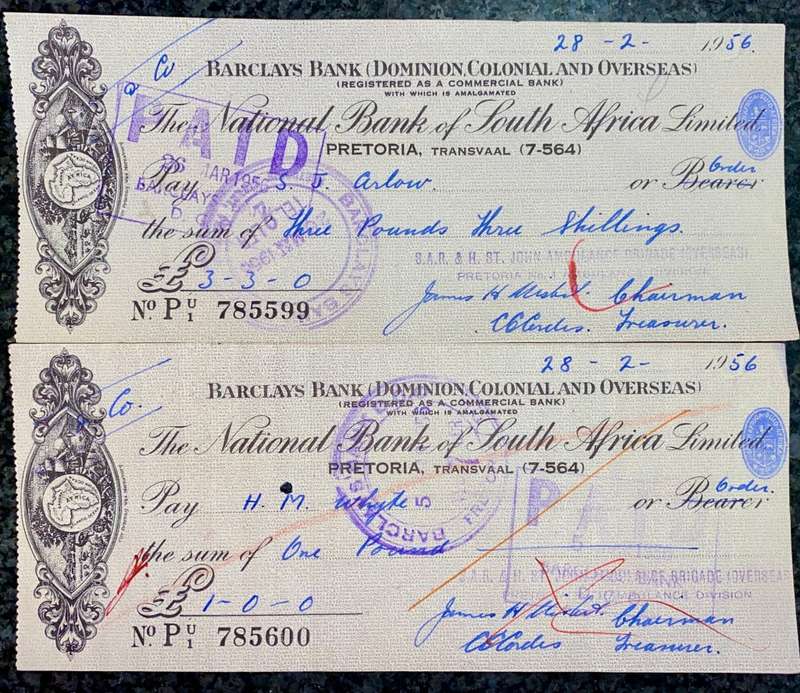 28 - 2 - 1956.
& Co
BARCLAYS BANK (DOMINION, COLONIAL AND OVERSEAS)
(REGISTERED AS A COMMERCIAL BANK)
WITH WHICH IS AMALGAMATED
The National Bank of South Africa Limited
PRETORIA, TRANSVAAL (7-564)
PAID
26 MAR 1956
BARCLAYS
Pay S. J. Arlow. or Bearer Order
the sum of Three Pounds Three Shillings.
S.A.R. & H. ST. JOHN AMBULANCE BRIGADE (OVERSEAS)
£ 3 - 3 - 0
James H Chairman
No. P U/1 785599
Treasurer.
28 - 2 - 1956
& Co.
BARCLAYS BANK (DOMINION, COLONIAL AND OVERSEAS)
(REGISTERED AS A COMMERCIAL BANK)
WITH WHICH IS AMALGAMATED
The National Bank of South Africa Limited
PRETORIA, TRANSVAAL (7-564)
Pay H. M. Whyte or Bearer Order.
PAID
the sum of One Pound
S.A.R. & H. ST. JOHN AMBULANCE BRIGADE (OVERSEAS
AMBULANCE DIVISION
£ 1 - 0 - 0
James H Chairman
No. P U/1 785600
Treasurer.